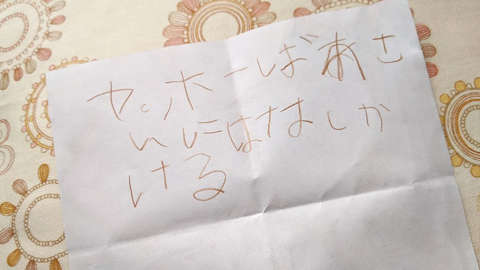 ヤッホーばあさ
いにはなしか
ける